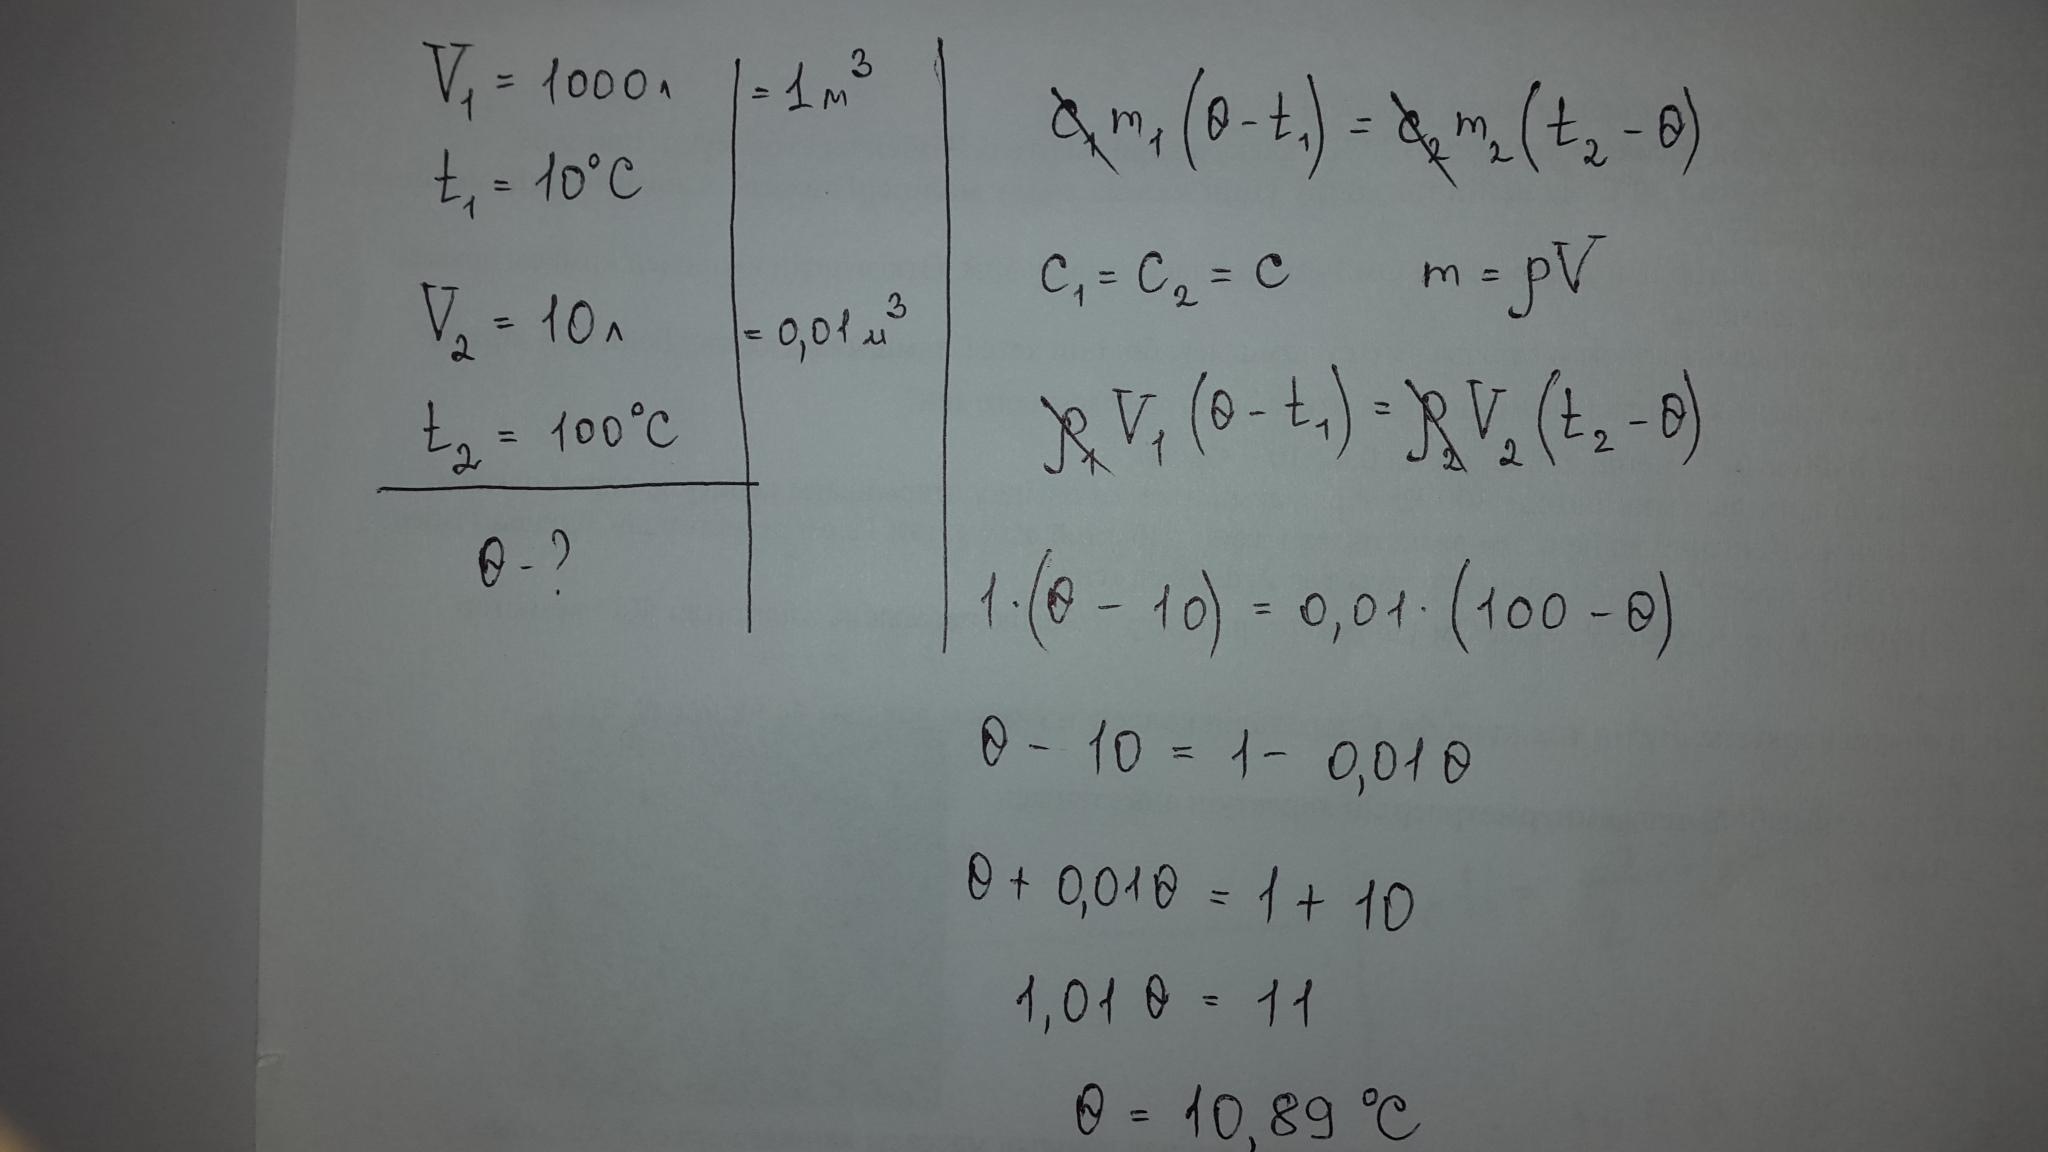 V₁ = 1000л = 1м³
t₁ = 10°C
V₂ = 10л = 0,01м³
t₂ = 100°C
θ - ?
c₁m₁(θ - t₁) = c₂m₂(t₂ - θ)
c₁ = c₂ = c m = ρV
ρ₁V₁(θ - t₁) = ρ₂V₂(t₂ - θ)
1·(θ - 10) = 0,01·(100 - θ)
θ - 10 = 1 - 0,01θ
θ + 0,01θ = 1 + 10
1,01 θ = 11
θ = 10,89 °C